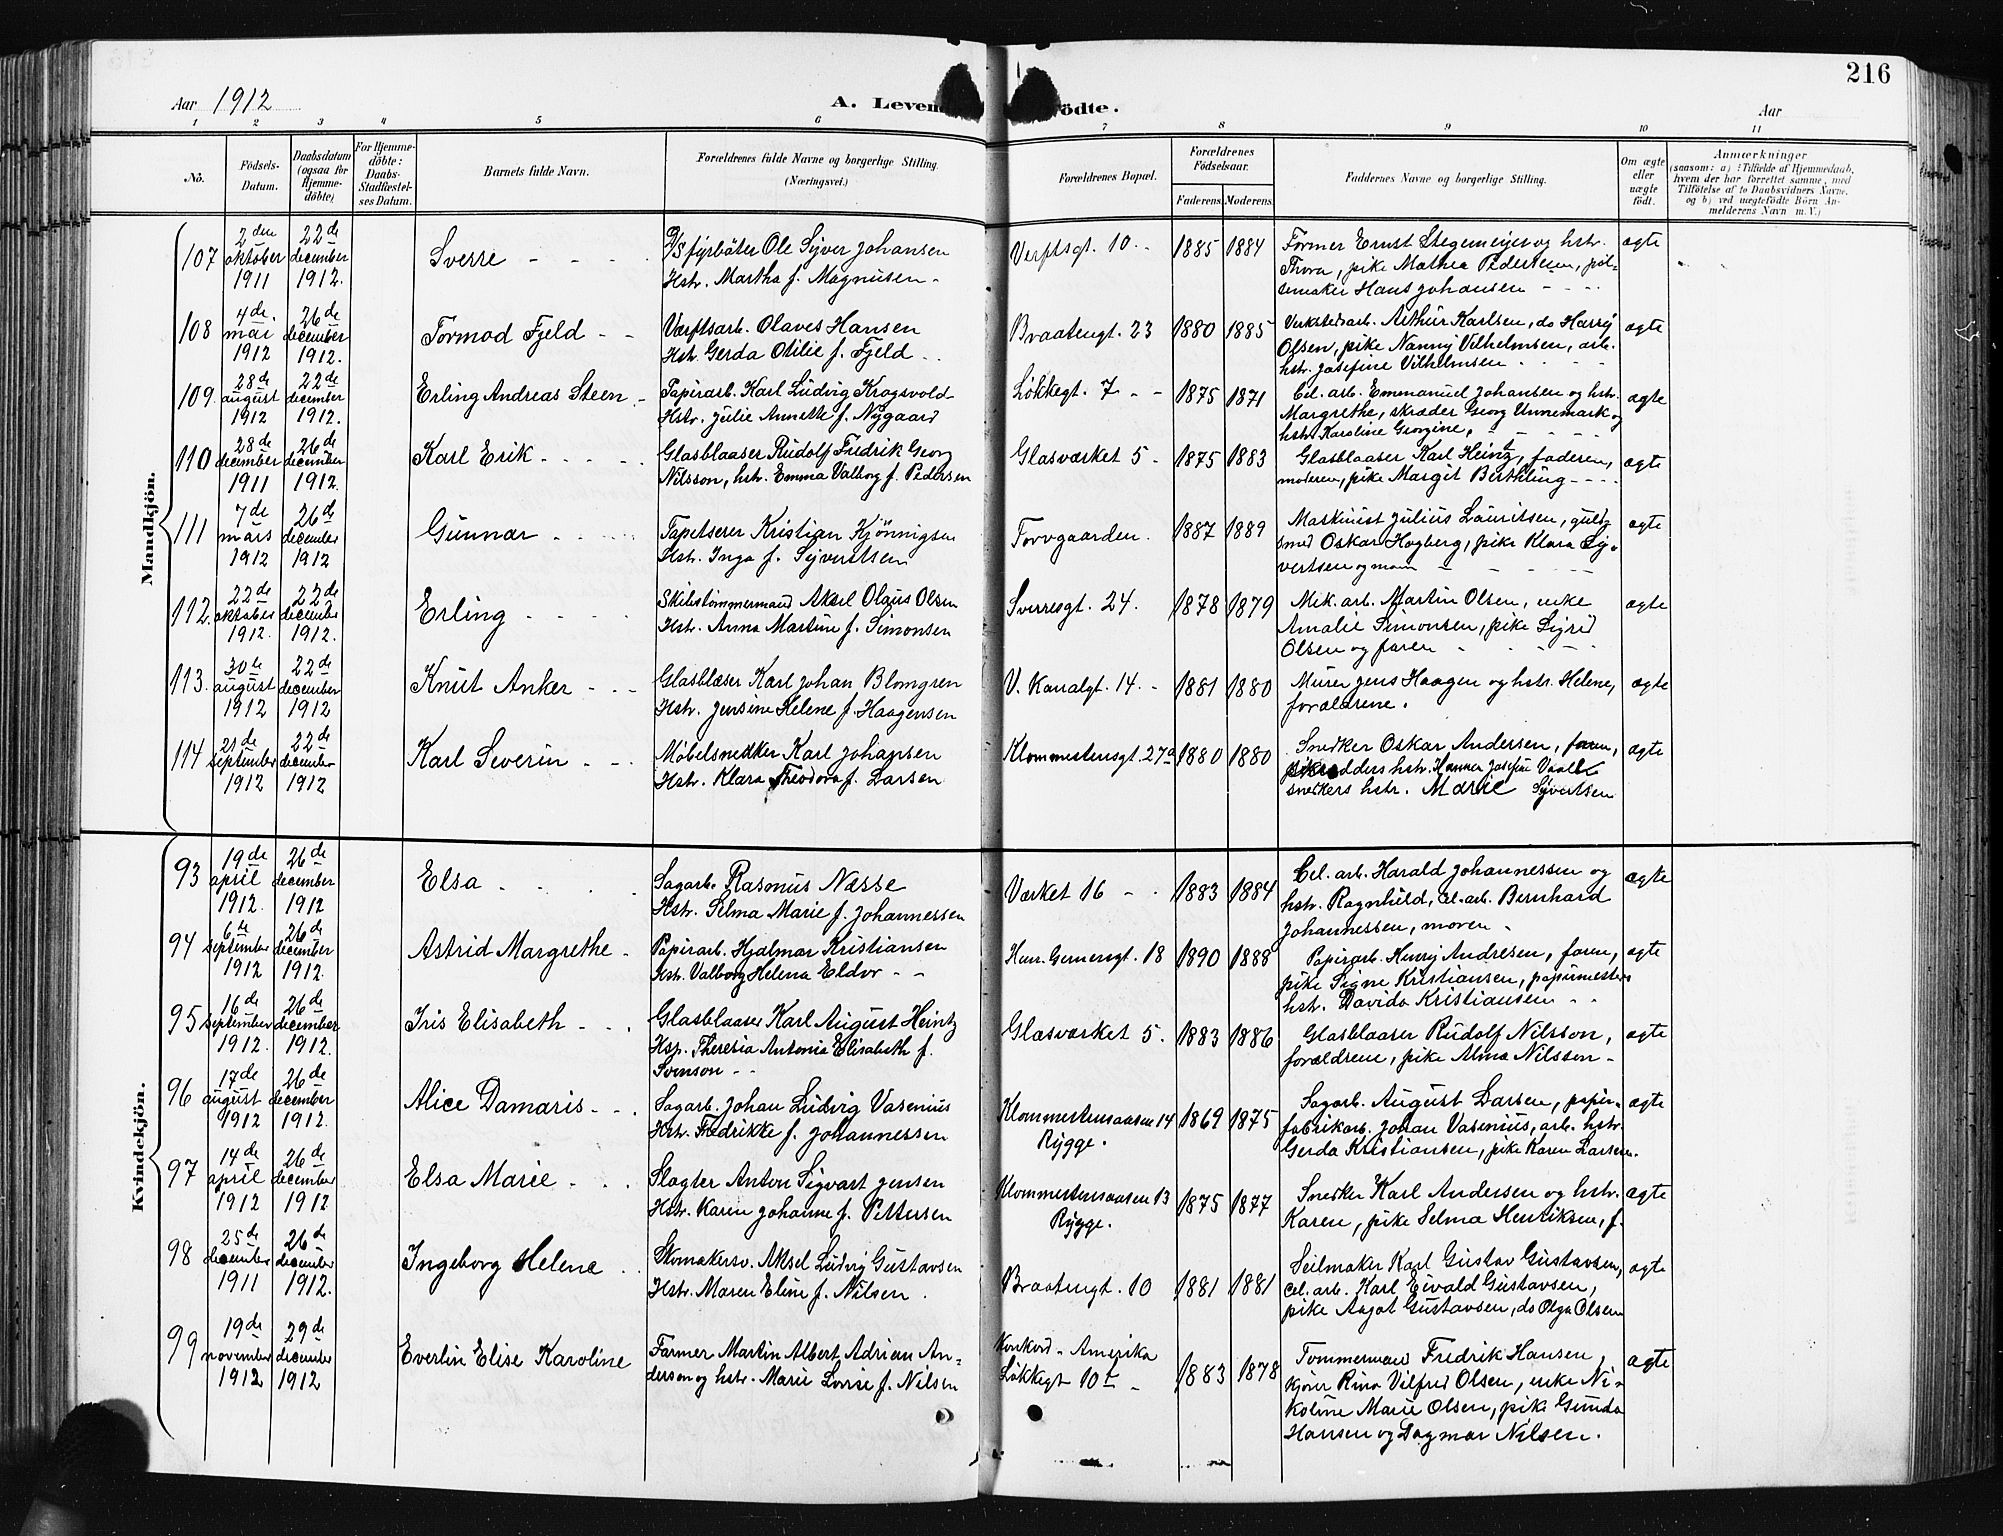 216
Aar 1912
A. Levend
födte.
Aar
1 2 3 4 5 6 7 8 9 10 11
No.
Födsels-
Datum.
Daabsdatum
(ogsaa for
Hjemme-
døbte)
For Hjemme-
døbte:
Daabs-
Stadfæstel-
ses Datum.
Barnets fulde Navn.
Forældrenes fulde Navne og borgerlige Stilling.
(Næringsvei.)
Forældrenes Bopæl.
Forældrenes
Födselsaar.
Faderens Moderens
Faddernes Navne og borgerlige Stilling.
Om ægte
eller
uægte
født.
Anmærkninger
(saasom: a) i Tilfælde af Hjemmedaab,
hvem der har forrettet samme, med
Tilföielse af to Daabsvidners Navne.
og b) ved uægtefödte Börn An-
melderens Navn m. V.)
Mandkjön.
107 2den oktober 1911 22de december 1912. Sverre
fyrbøter Ole Syver Johansen
Hstr. Martha f. Magnusen
Verftsgt. 10. 1885 1884
Former Ernst Stegemeijer og hstr.
Thora, pike Mathea Pedersen, pøl-
semaker Hans Johansen
ægte
108 4de mai 1912 26de december 1912. Tormod Fjeld
Værftsarb. Olaves Hansen
Hstr Gerda Otilie f. Fjeld
Braatengt. 23 1880 1885
Verkstedsarb. Arthur Karlsen, do Harry
Olsen, pike Nanny Vilhelmsen, arb.
hstr. Josefine Vilhelmsen
ægte
109. 28de august 1912 22de december 1912. Erling Andreas Steen
Papirarb. Karl Ludvig Krogsvold
Hstr. Julie Annette f. Nygaard
Løkkegt. 7 1875 1871
Cel. arb. Emmanuel Johansen og hstr.
Margrethe, skræder Georg Unnemark og
hstr Karoline Georgine,
ægte
110 28de december 1911 26de december 1912. Karl Erik
Glasblaaser Rudolf Fredrik Georg
Nilsson, hstr. Emma Valborg f. Pedersen
Glasværket 5 1875 1883
Glasblaaser Karl Heintz, faderen,
moderen, pike Margit Berthling
ægte
111 7de mars 1912 26de december 1912 Gunnar
Tapetserer Kristian Kjønnigsen
Hstr. Inga f. Syvertsen
Torvgaarden. 1887 1889
Maskinist Julius Lauritsen, guld
smed Oskar Høgberg, pike Klara Sy-
vertsen og mor
ægte
112. 22de oktober 1912. 22de december 1912. Erling
Skibstømmermand Aksel Olaus Olsen
Hstr. Anna Martine f. Simonsen
Sverresgt. 24. 1878 1879
Mek. arb. Martin Olsen, enke
Amalie Simonsen, pike Sigrid
Olsen og faren
ægte
113. 30te august 1912 22de december 1912 Knut Anker
Glasblæser Karl Johan Blomgren
Hstr. Jensine Helene f. Haagensen
V. Kanalgt. 14. 1881 1880
Murer Jens Haagen og hstr. Helene,
forældrene.
ægte
114 21de september 1912 22de december 1912 Karl Severin
Møbelsnedker Karl Johansen
Hstr. Klara Theodora f. Larsen
Klommestensgt. 27a 1880 1880
Snedker Oskar Andersen, faren,
skrædders hstr. Hanna Josefine
snedkers hstr. Marie Syvertsen
ægte
Kvindekjön.
93 19de april 1912. 26de december 1912 Elsa
Sagarb. Rasmus Næsse
Hstr. Selma Marie f. Johannessen
Værket 16 1883 1884
Cel. arb. Harald Johannessen og
hstr. Ragnhild, cel. arb. Bernhard
Johannessen, moren
ægte
94 6te september 1912 26de december 1912. Astrid Margrethe
Papirarb. Hjalmar Kristiansen
Hstr. Valborg Helena Eldor
Henr. Gernersgt. 18 1890 1888
Papirarb. Henry Andresen, faren,
pike Signe Kristiansen, papirmesters
hstr. Davida Kristiansen
ægte
95 16de september 1912. 26de december 1912. Iris Elisabeth
Glasblaaser Karl August Heintz
Hsp. Theresia Antonia Elisabeth f.
Svenson
Glasværket 5. 1883 1886
Glasblaaser Rudolf Nilsson,
forældrene, pike Alma Nilsson
ægte
96 17de august 1912 26de december 1912. Alice Damaris
Sagarb. Johan Ludvig Vasenius
Hstr. Fredrikke f. Johannessen
Klommestensaasen 14
Rygge. 1869 1875
Sagarb. August Larsen, papir-
fabrikarb. Johan Vasenius, arb. hstr.
Gerda Kristiansen, pike Karen Larsen.
ægte
97 14de april 1912 26de december 1912 Elsa Marie
Slagter Anton Sigvart Jensen
Hstr. Karen Johanne f. Pettersen
Klommestensaasen 13
Rygge. 1875 1877
Snedker Karl Andersen og hstr.
Karen, pike Selma Henriksen, f.
ægte
98 25de december 1911 26de december 1912. Ingeborg Helene
Skomakersv. Aksel Ludvig Gustavsen
Hstr. Maren Eline f. Nilsen.
Braatengt. 10 1881 1881
Seilmaker Karl Gustav Gustavsen,
cel. arb. Karl Eivald Gustavsen,
pike Aagot Gustavsen, do Olga Olsen
ægte
99 19de november 1912 29de december 1912 Everlin Elise Karoline
Farmer Martin Albert Adrian An-
derson og hstr. Marie Lovise f. Nilsen
Konkord - Amerika
Løkkegt 10 1883 1878
Tømmermand Fredrik Hansen,
kjører Rino Vilfred Olsen, enke Ni-
koline Marie Olsen, pike Gunda
Hansen og Dagmar Nilsen.
ægte